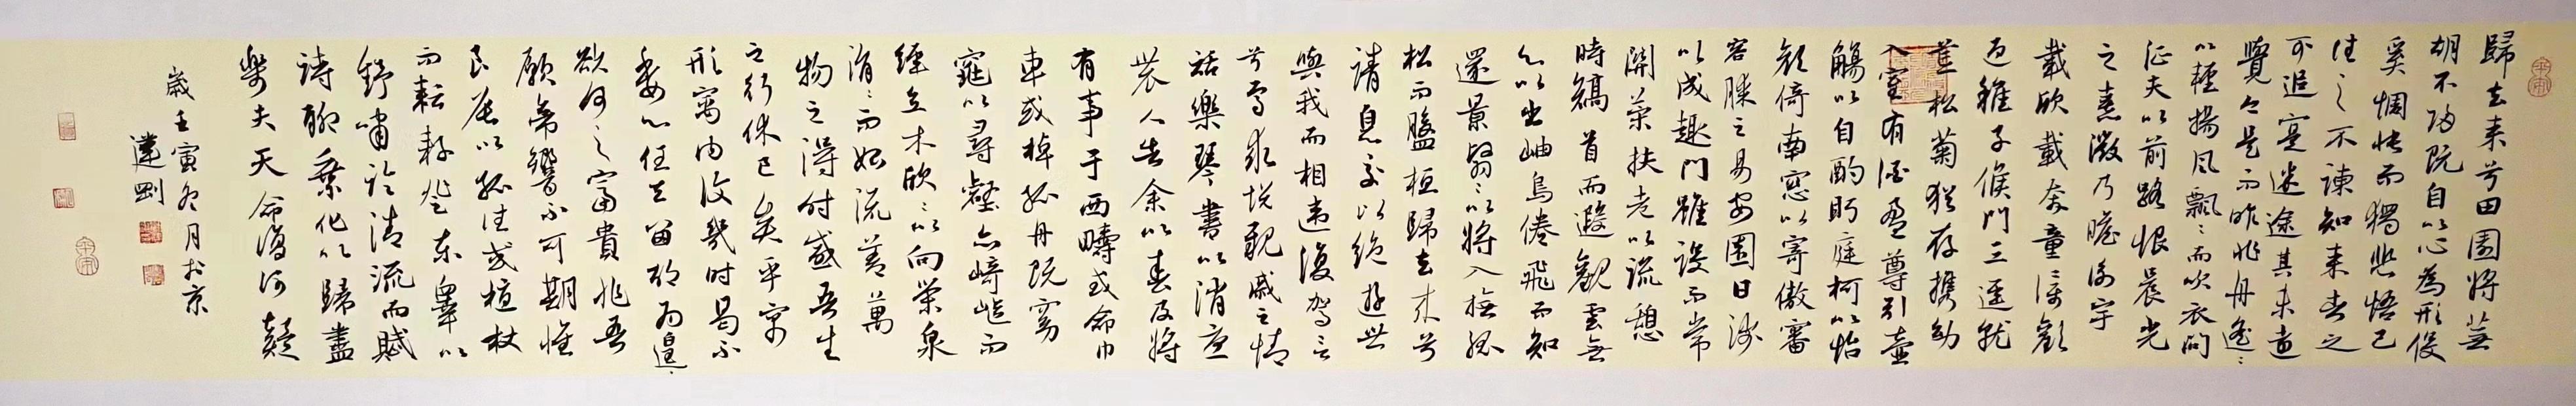 歸去来兮田園将蕪
胡不歸既自以心為形役
奚惆悵而獨悲悟已
往之不諫知来者之
可追寔迷途其未遠
覺今是而昨非舟遙〻
以輕揚風飄〻而吹衣問
征夫以前路恨晨光
之熹微乃瞻衡宇
載欣載奔童僕歡
迎稚子候門三逕就
荒松菊猶存攜幼
入室有酒盈尊引壺
觴以自酌眄庭柯以怡
顏倚南窓以寄傲審
容膝之易安園日涉
以成趣門雖設而常
關策扶老以流憩
時矯首而遐觀雲無
心以出岫鳥倦飛而知
還景翳〻以将入撫孤
松而盤桓歸去来兮
請息交以絕游世
與我而相違復駕言
兮焉求悅親戚之情
話樂琴書以消憂
農人告余以春及将
有事于西疇或命巾
車或棹孤舟既窈
窕以尋壑亦崎嶇而
經丘木欣〻以向榮泉
涓〻而始流善萬
物之得時感吾生
之行休已矣乎寓
形寓内復幾時曷不
委心任去留胡為遑〻
欲何之富貴非吾
願帝鄉不可期懷
良辰以孤往或植杖
而耘耔登東皋以
舒嘯臨清流而賦
詩聊乘化以歸盡
樂夫天命復何疑
歲壬寅冬月於京
達剛